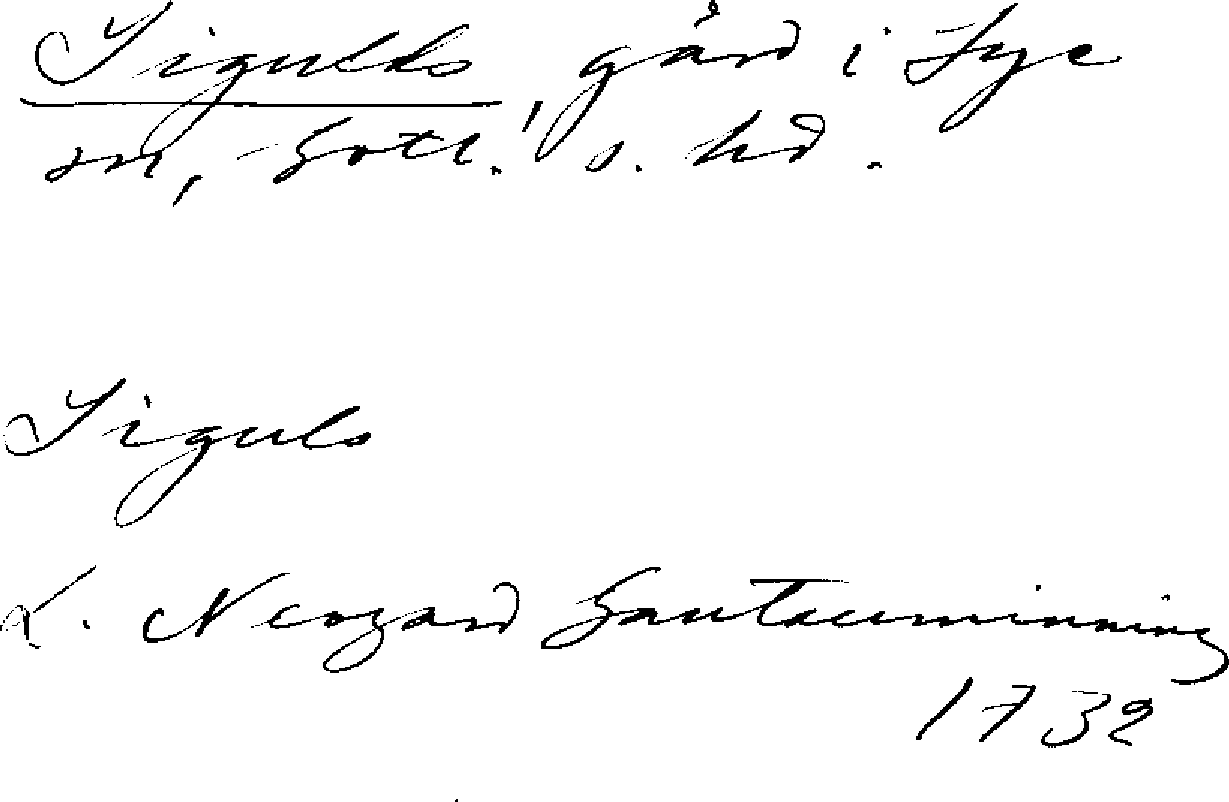 Sigulds, gård i Fye
sn, Gotl. s. hd.
Siguls
L. Neogard Gautauminning
1732